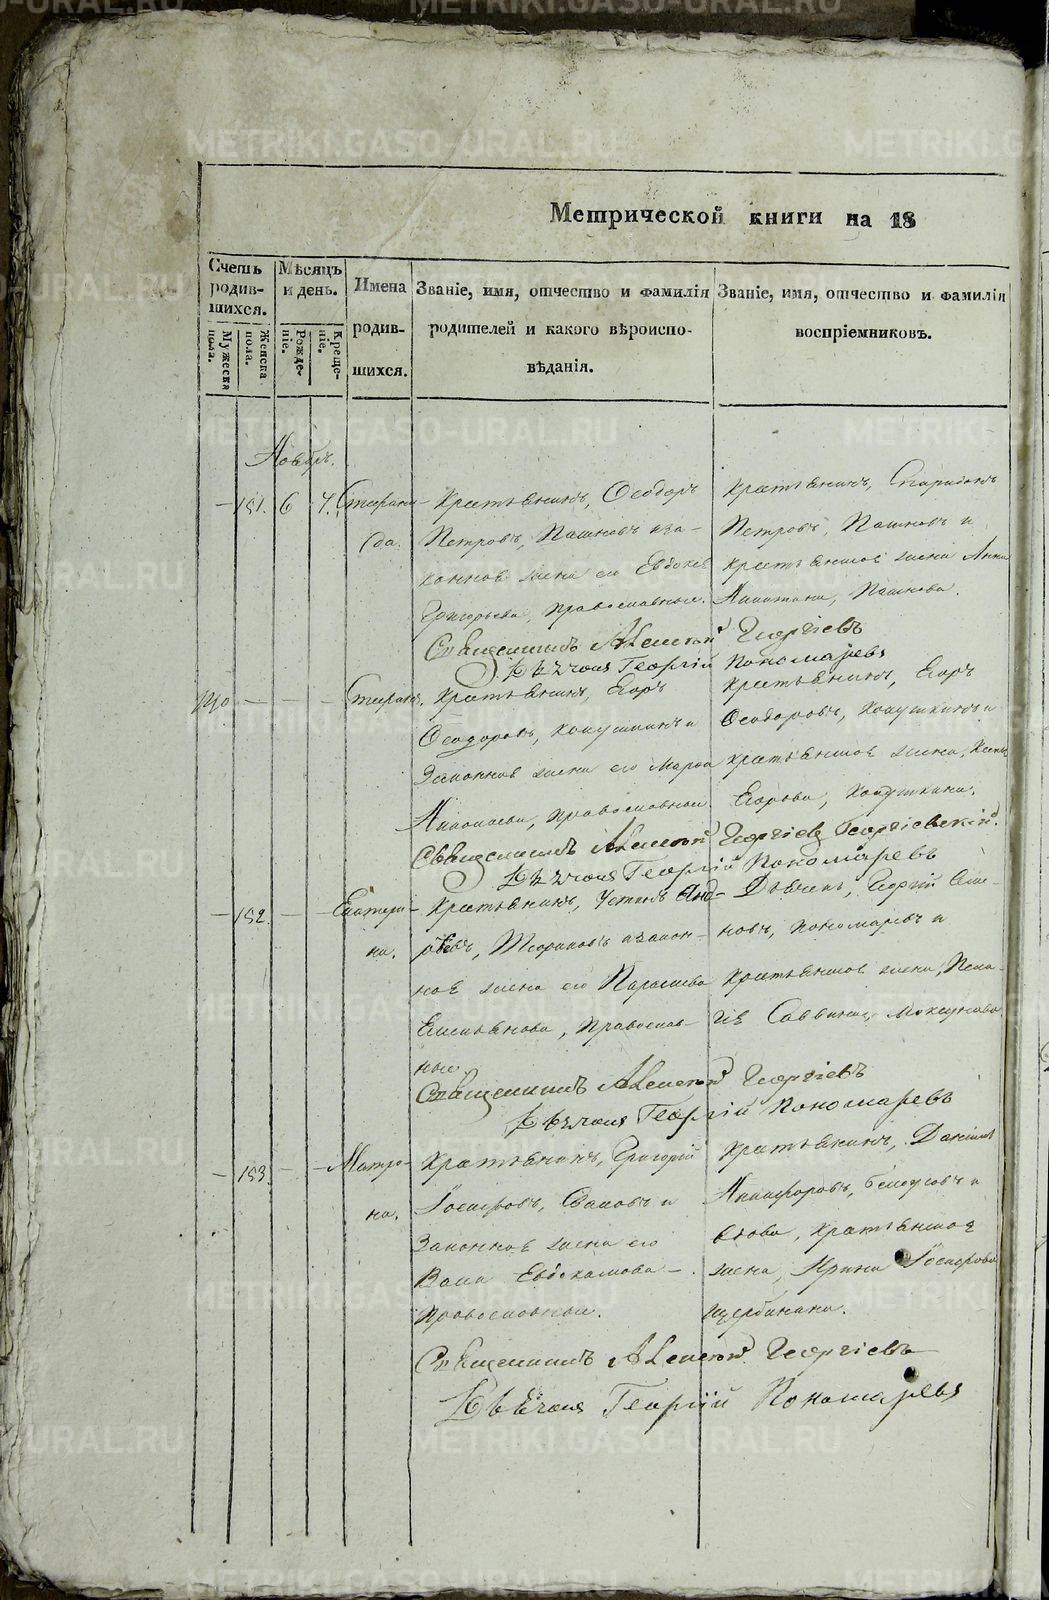 Метрической книги на 18
Счетъ родившихся.
Мужеска пола.
Женска пола.
Мѣсяцъ и день.
Рожденіе.
Крещеніе.
Имена родившихся.
Званіе, имя, отчество и фамилія родителей и какого вѣроисповѣданія.
Званіе, имя, отчество и фамилія воспріемниковъ.
Ноябрь.
151. 6 7. Степани-
да.
Крестьянинъ, Ѳеодоръ
Петровъ, Пашковъ и за-
конная жена его Евдокія
Григорьева, православные.
Крестьянинъ, Спиридонъ
Петровъ, Пашковъ и
крестьянская жена Анна
Пашкова.
Священникъ Алексѣй Георгіевъ
Дьячокъ Георгій Пономаревъ
Стефанъ.
Крестьянинъ, Егоръ
Ѳеодоровъ, и
Законная жена его Марѳа
православные.
Крестьянинъ, Егоръ
Ѳеодоровъ, и
крестьянская жена,
Егорова,
Священникъ Алексѣй Георгіев Георгіевскій.
Дьячокъ Георгій Пономаревъ
152. Екатери-
на.
Крестьянинъ, Устинъ Анд-
реевъ, и закон-
ная жена его Параскева
Емельянова, Православ-
ные
Дьячекъ, Георгій Симе-
новъ, Пономаревъ и
Крестьянская жена, Пела-
гія Саввина,
Священникъ Алексѣй Георгіевъ
Дьячокъ Георгій Пономаревъ
153. Матро-
на.
Крестьянинъ, Григорій
Іосифовъ, и
Законная жена его
Евдокимова
православные.
Крестьянинъ, Даніилъ
Никифоровъ, и
вдова, крестьянская
жена, Ирина
Щербинина.
Священникъ Алексѣй Георгіевъ
Дьячокъ Георгій Пономаревъ
METRIKI.GASO-URAL.RU